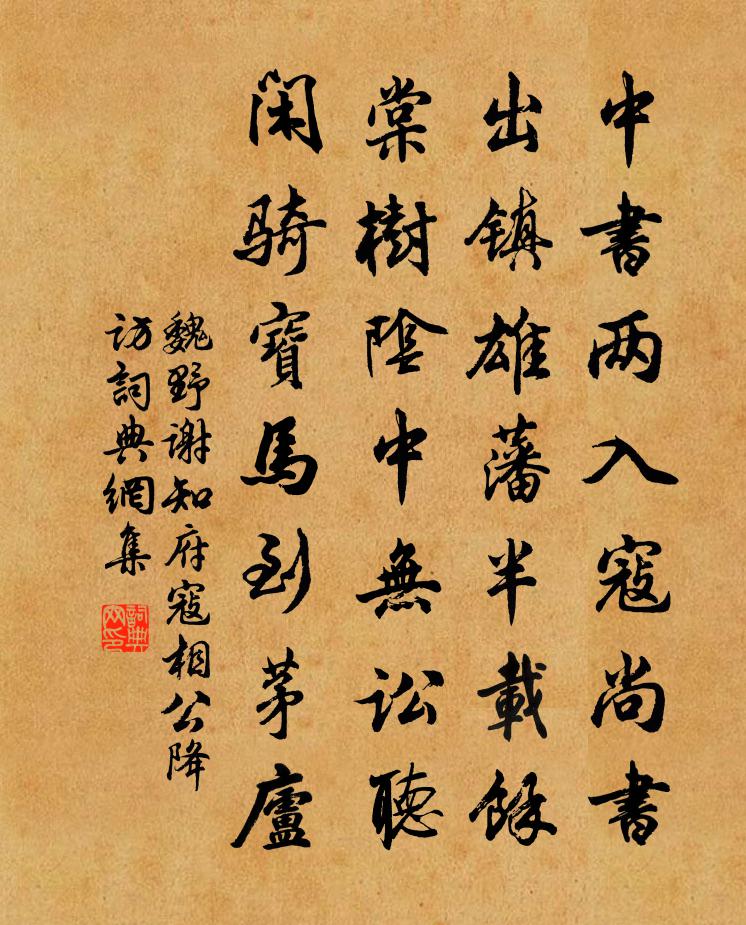 中書两入寇尚書
出镇雄藩半載餘
棠樹陰中無訟聽
閑骑寶馬到茅廬
魏野谢知府寇相公降
访詞典網集
詞典网印